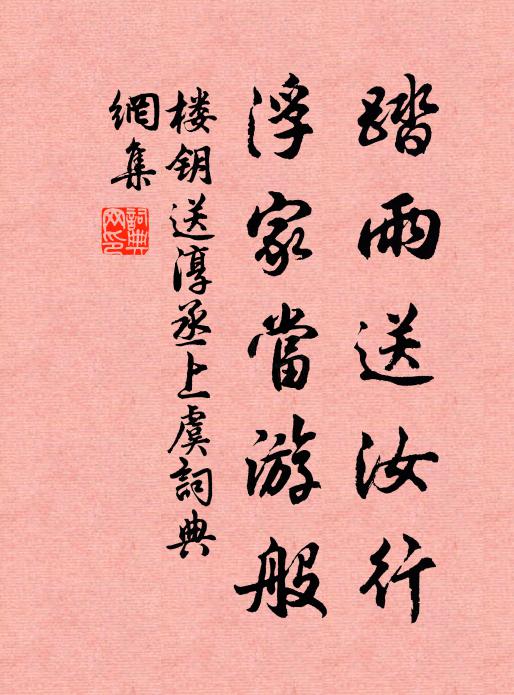 踏雨送汝行
浮家當游般
楼钥送淳丞上虞詞典
網集
詞典
网印